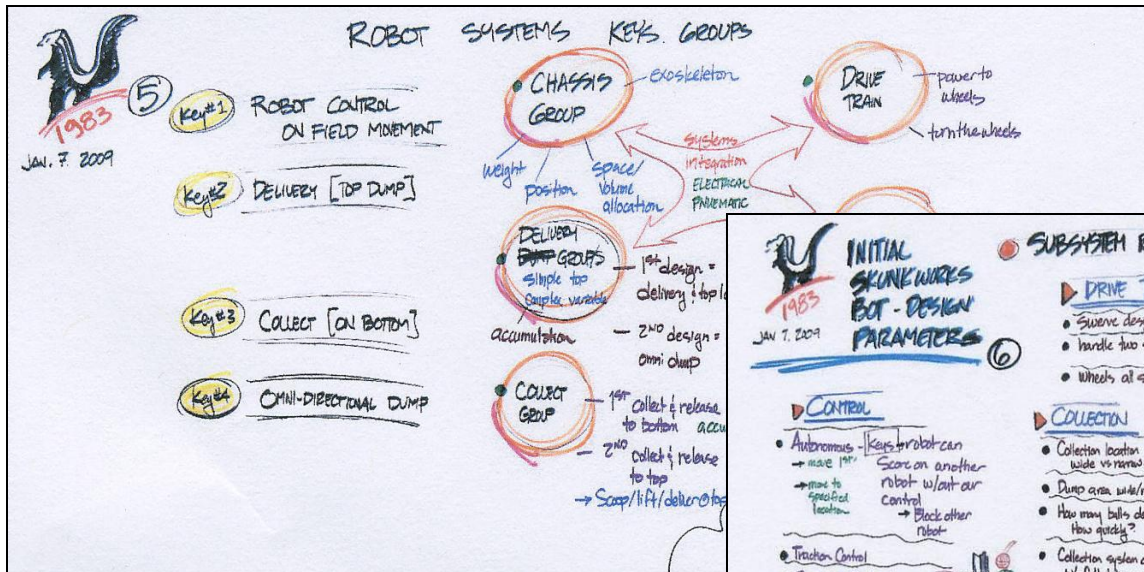 ROBOT SYSTEMS KEYS. GROUPS
5
1983
JAN. 7 2009
Key#1
ROBOT CONTROL
ON FIELD MOVEMENT
Key#2
DELIVERY [TOP DUMP]
Key#3
COLLECT [ON BOTTOM]
Key#4
OMNI-DIRECTIONAL DUMP
CHASSIS
GROUP
exoskeleton
weight
position
space/
volume
allocation
DRIVE
TRAIN
power to
wheels
turn the wheels
systems
integration
ELECTRICAL
PNUEMATIC
DELIVERY
DUMP GROUPS
simple top
complex variable
accumulation
1st design =
delivery & top
2ND design =
omni dump
COLLECT
GROUP
1st collect & release
to bottom accu
2ND collect & release
to top
→ Scoop/lift/deliver@top
1983
JAN 7. 2009
INITIAL
SKUNKWORKS
BOT - DESIGN
PARAMETERS
6
CONTROL
Autonomous - Keys → robot can
→ move 1st
Score on another
robot w/out our
control
→ move to
specified
location
→ Block other
robot
Traction Control
SUBSYSTEM
DRIVE
Swerve des
handle two
wheels all
COLLECTION
Collection location
wide vs narrow
Dump area wide/
How many balls
How quickly?
Collection system